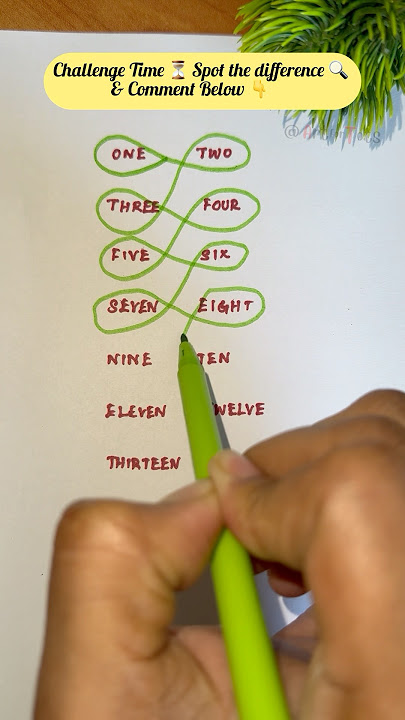 Challenge Time ⏳ Spot the difference 🔍
& Comment Below 👇
ONE TWO
THREE FOUR
FIVE SIX
SEVEN EIGHT
NINE TEN
ELEVEN WELVE
THIRTEEN